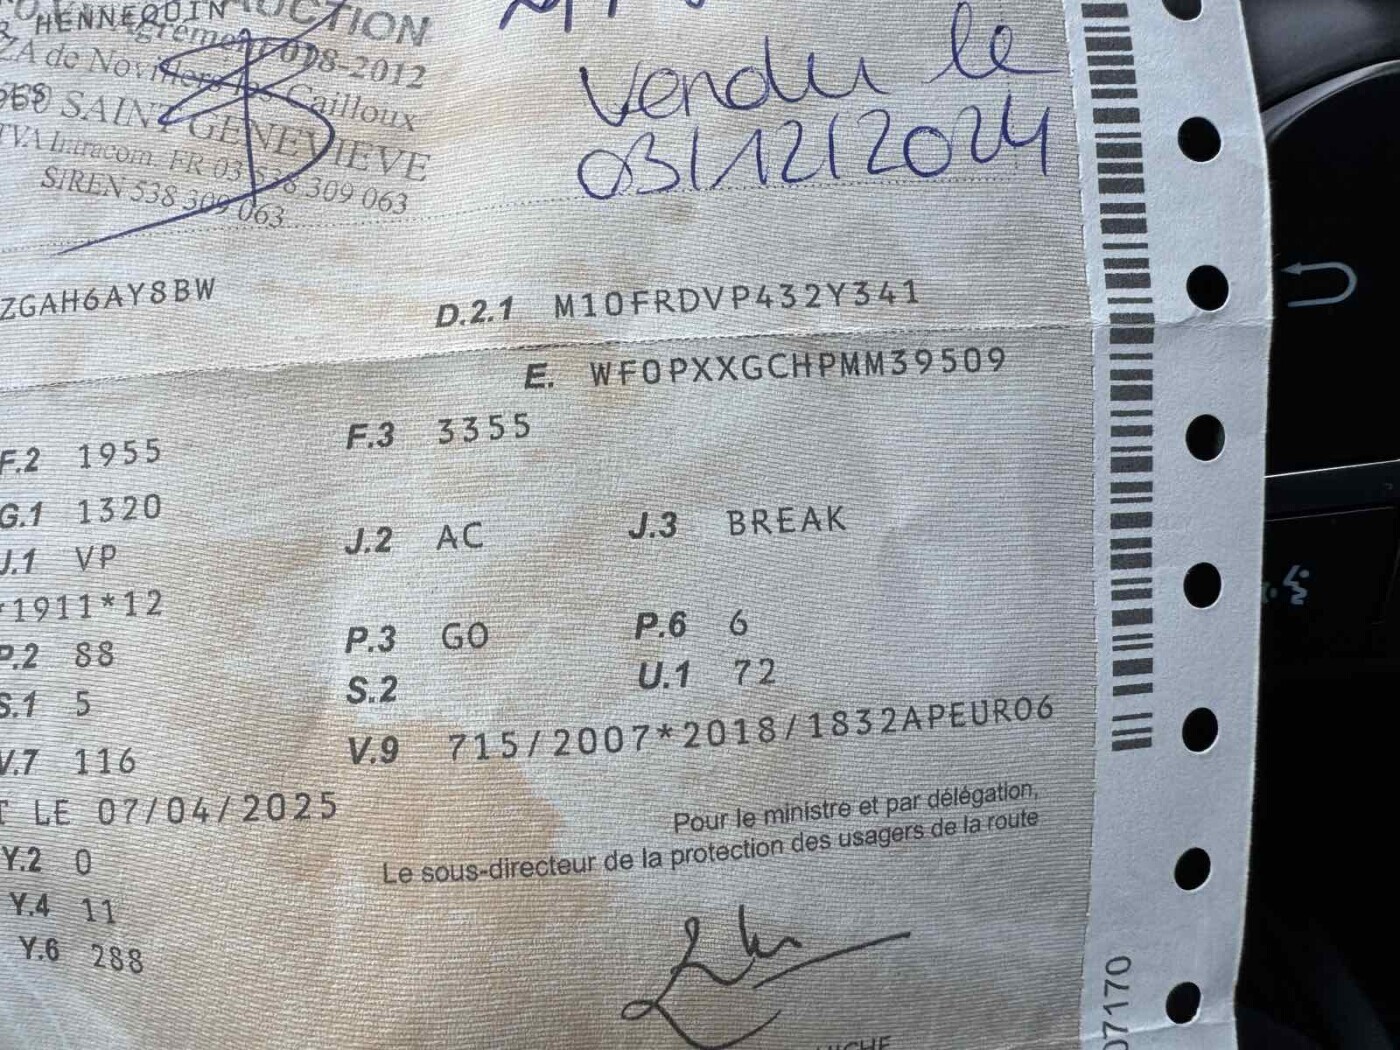 HENNEQUIN
Agrément 098-2012
ZA de Novillers les Cailloux
SAINT GENEVIEVE
TVA Intracom. FR 03 538 309 063
SIREN 538 309 063
Vendu le
03/12/2024
ZGAH6AY8BW
D.2.1 M10FRDVP432Y341
E. WF0PXXGCHPMM39509
F.2 1955 F.3 3355
G.1 1320
J.1 VP J.2 AC J.3 BREAK
*1911*12
P.2 88 P.3 GO P.6 6
S.1 5 S.2 U.1 72
V.7 116 V.9 715/2007*2018/1832APEURO6
LE 07/04/2025
Pour le ministre et par délégation,
Le sous-directeur de la protection des usagers de la route
Y.2 0
Y.4 11
Y.6 288
07170